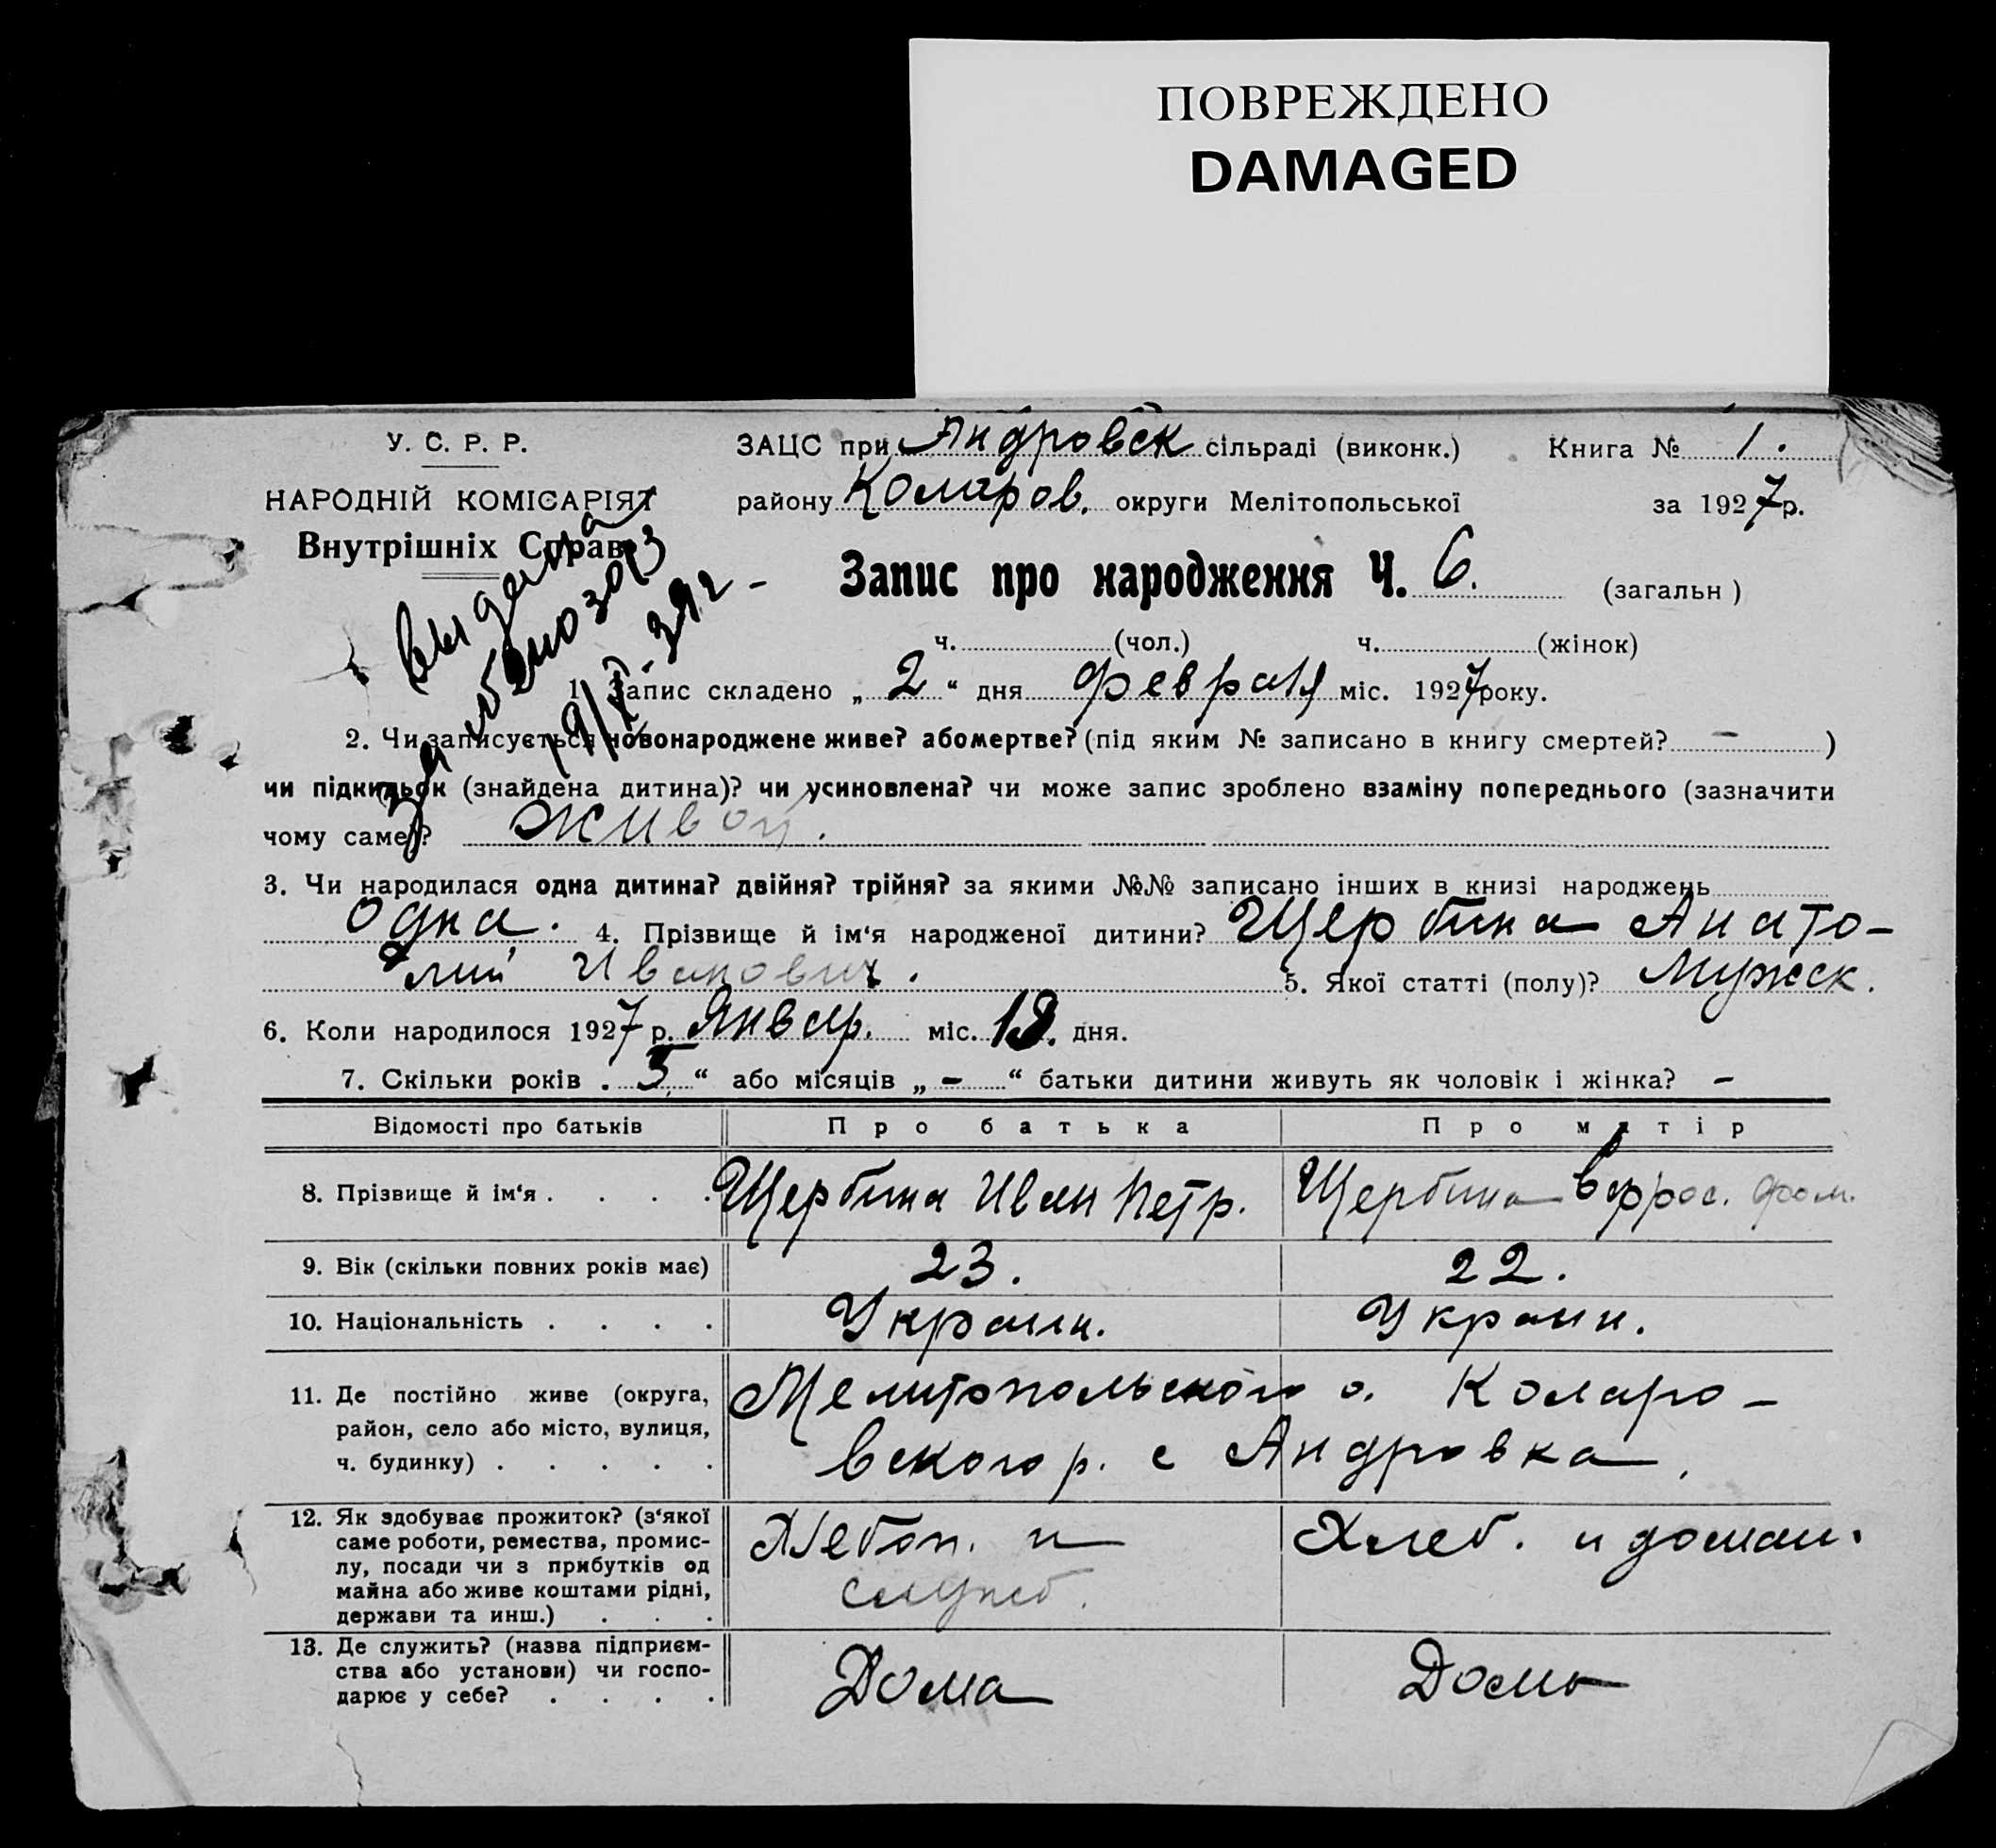 ПОВРЕЖДЕНО
DAMAGED
У. С. Р. Р.
НАРОДНІЙ КОМІСАРІЯТ
Внутрішніх Справ
ЗАЦС при Андровск сільраді (виконк.) Книга № 1.
району Коларов. округи Мелітопольської за 1927 р.
Запис про народження Ч. 6. (загальн)
ч. (чол.) ч. (жінок)
выдана
19/X-39г -
1. Запис складено „ 2 “ дня февраля міс. 1927 року.
2. Чи записується новонароджене живе? або мертве? (під яким № записано в книгу смертей? - )
чи підкидьок (знайдена дитина)? чи усиновлена? чи може запис зроблено взаміну попереднього (зазначити
чому саме)? живой.
3. Чи народилася одна дитина? двійня? трійня? за якими №№ записано інших в книзі народжень
одна. 4. Прізвище й ім'я народженої дитини? Щербина Анато-
лий Иванович. 5. Якої статті (полу)? Мужск.
6. Коли народилося 1927 р. Январ. міс. 18. дня.
7. Скільки років . 5 “ або місяців „ - “ батьки дитини живуть як чоловік і жінка? -
Відомості про батьків Про батька Про матір
8. Прізвище й ім'я . . . . Щербина Иван Петр. Щербина Ефрос. Фом.
9. Вік (скільки повних років має) 23. 22.
10. Національність . . . . Украин. Украин.
11. Де постійно живе (округа, Мелитопольского о. Коларо-
район, село або місто, вулиця, вского р. с Андровка.
ч. будинку) . . . . .
12. Як здобуває прожиток? (з'якої Хлебоп. и Хлеб. и домаш.
саме роботи, ремества, промис- служб.
лу, посади чи з прибутків од
майна або живе коштами рідні,
держави та инш.) . . .
13. Де служить? (назва підприєм- Дома Дома
ства або установи) чи госпо-
дарює у себе? . . . .